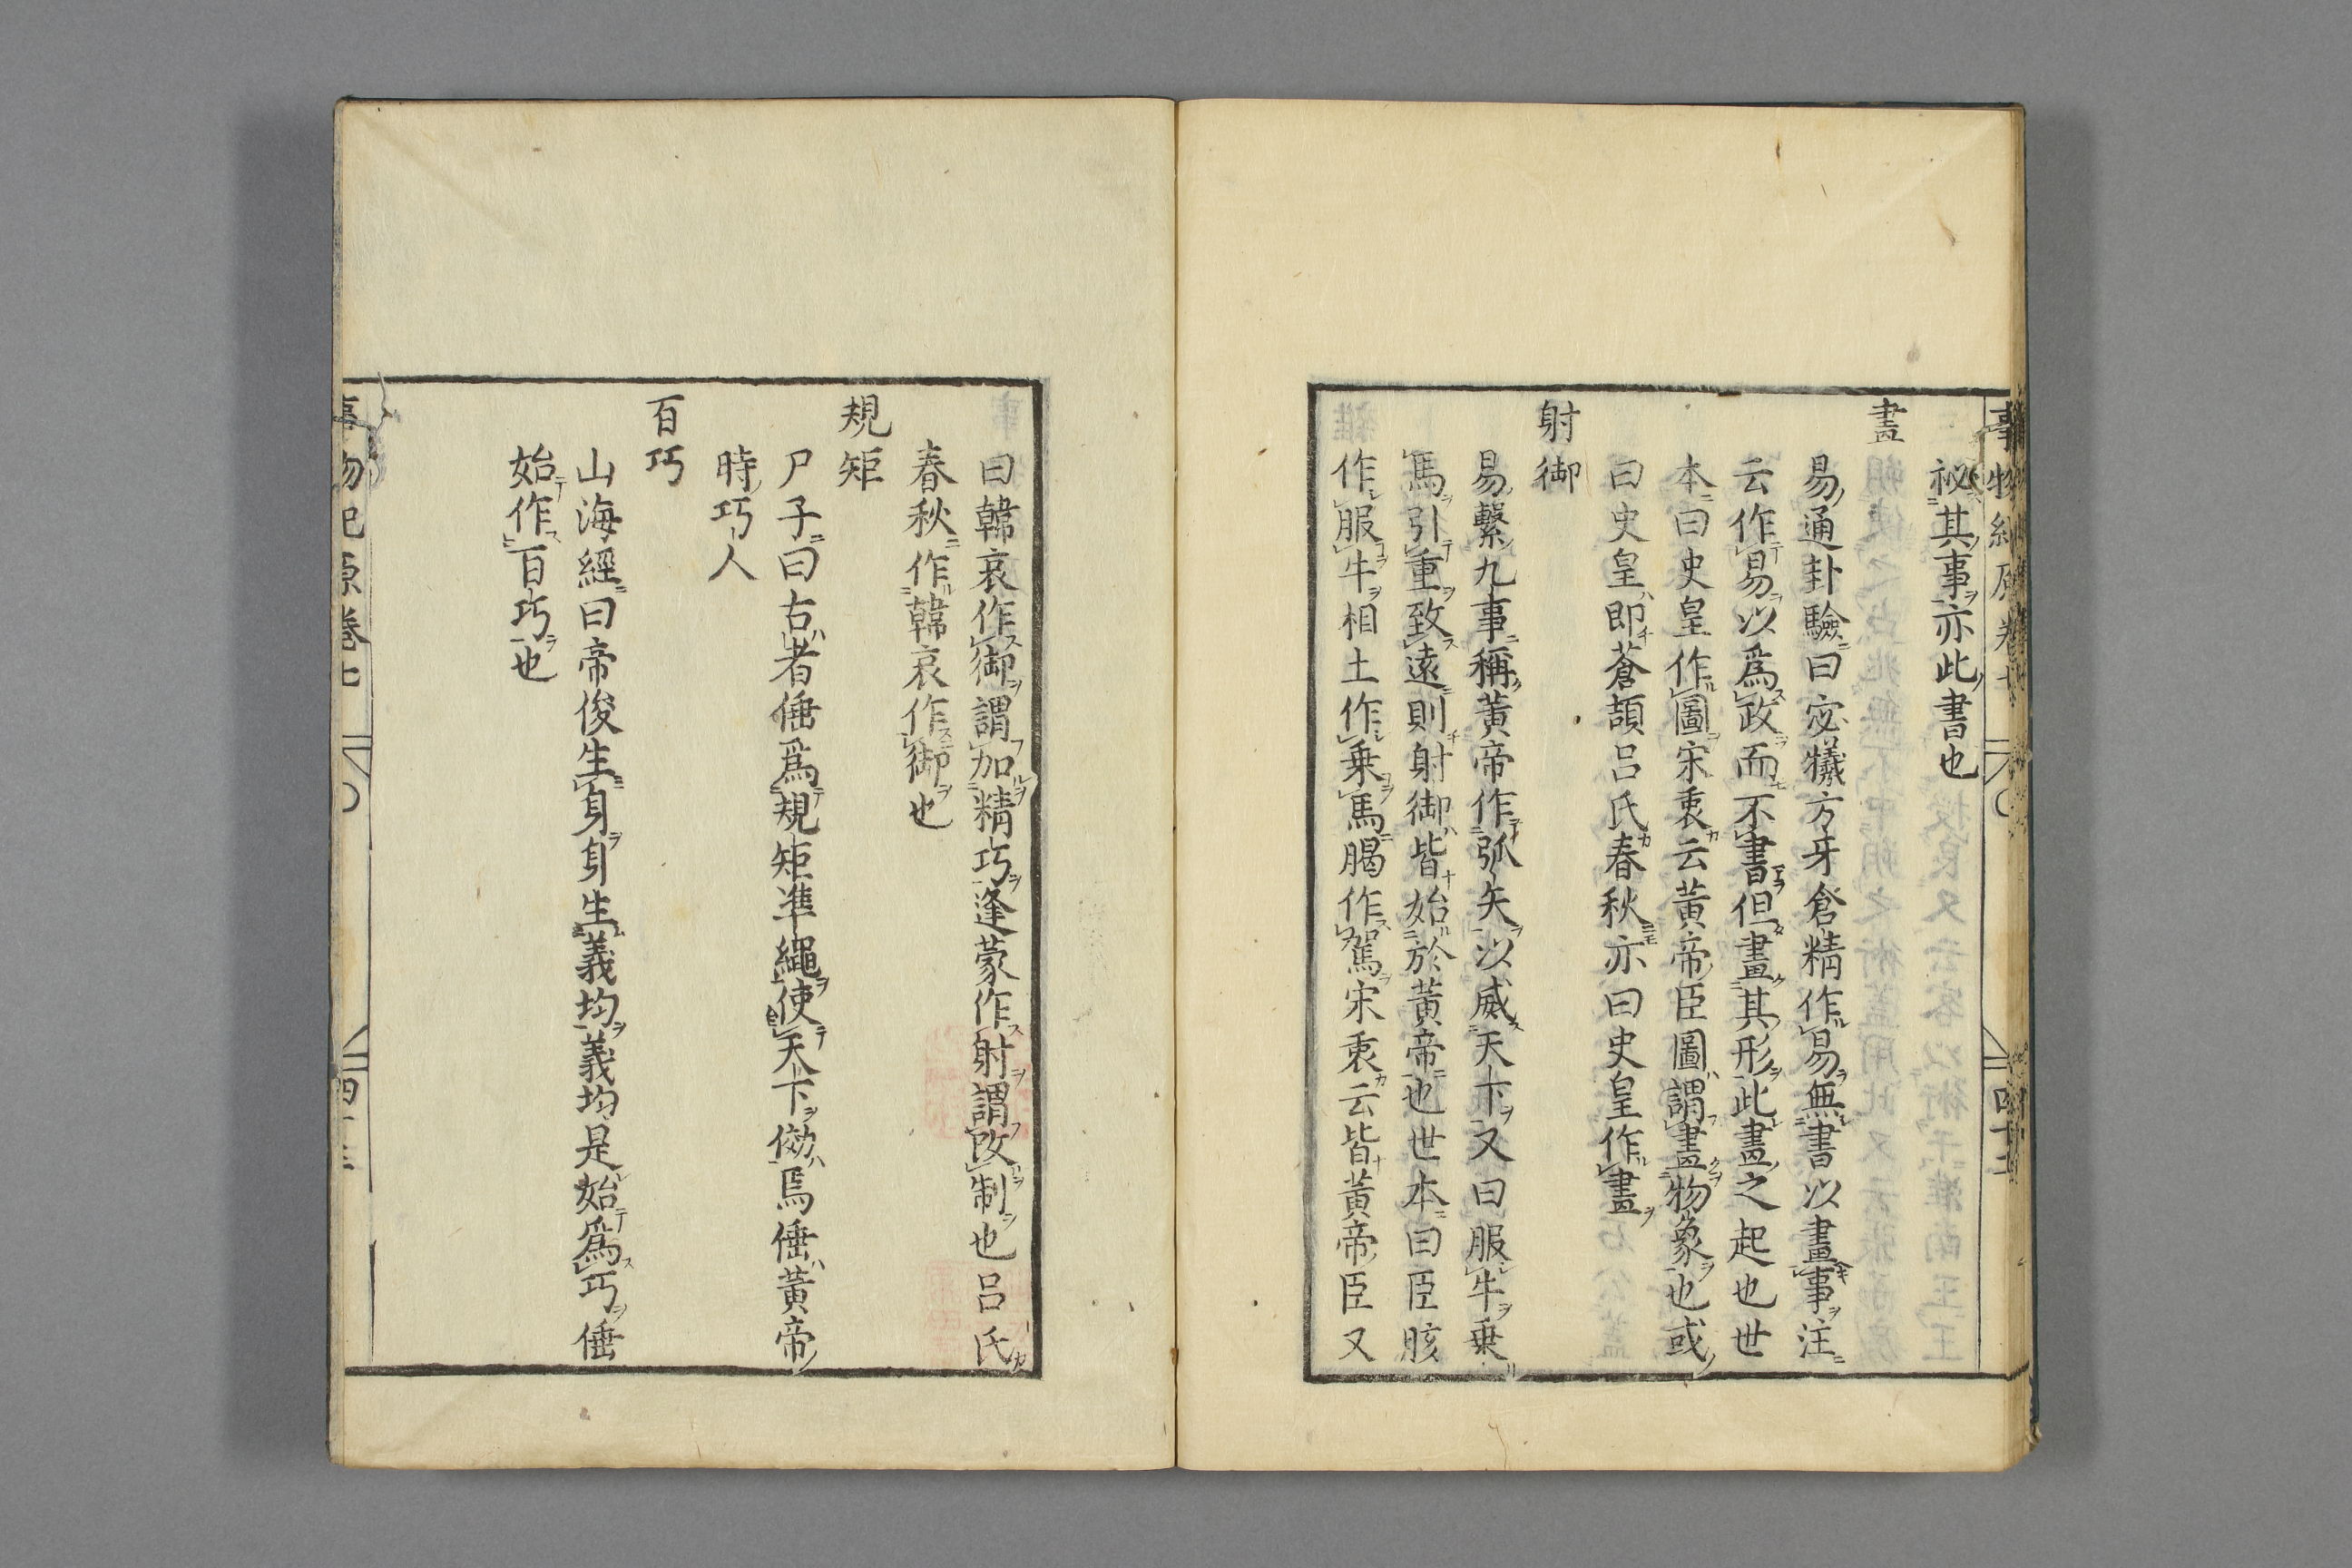 祕其事亦此書也
畫
易通卦驗曰宓犧方牙倉精作易無書以畫事注
云作易以爲政而不書但畫其形此畫之起也世
本曰史皇作圖宋衷云黃帝臣圖謂畫物象也或
曰史皇即蒼頡呂氏春秋亦曰史皇作畫
射御
易繫九事稱黃帝作弧矢以威天下又曰服牛乗
馬引重致遠則射御皆始於黃帝也世本曰臣胲
作服牛相土作乗馬𦝫作駕宋衷云皆黃帝臣又
曰韓哀作御謂加精巧逢蒙作射謂改制也呂氏
春秋作韓哀作御也
規矩
尸子曰古者倕爲規矩準繩使天下倣焉倕黃帝
時巧人
百巧
山海經曰帝俊生身身生義均義均是始爲巧倕
始作百巧也
事物紀原卷七
四十三